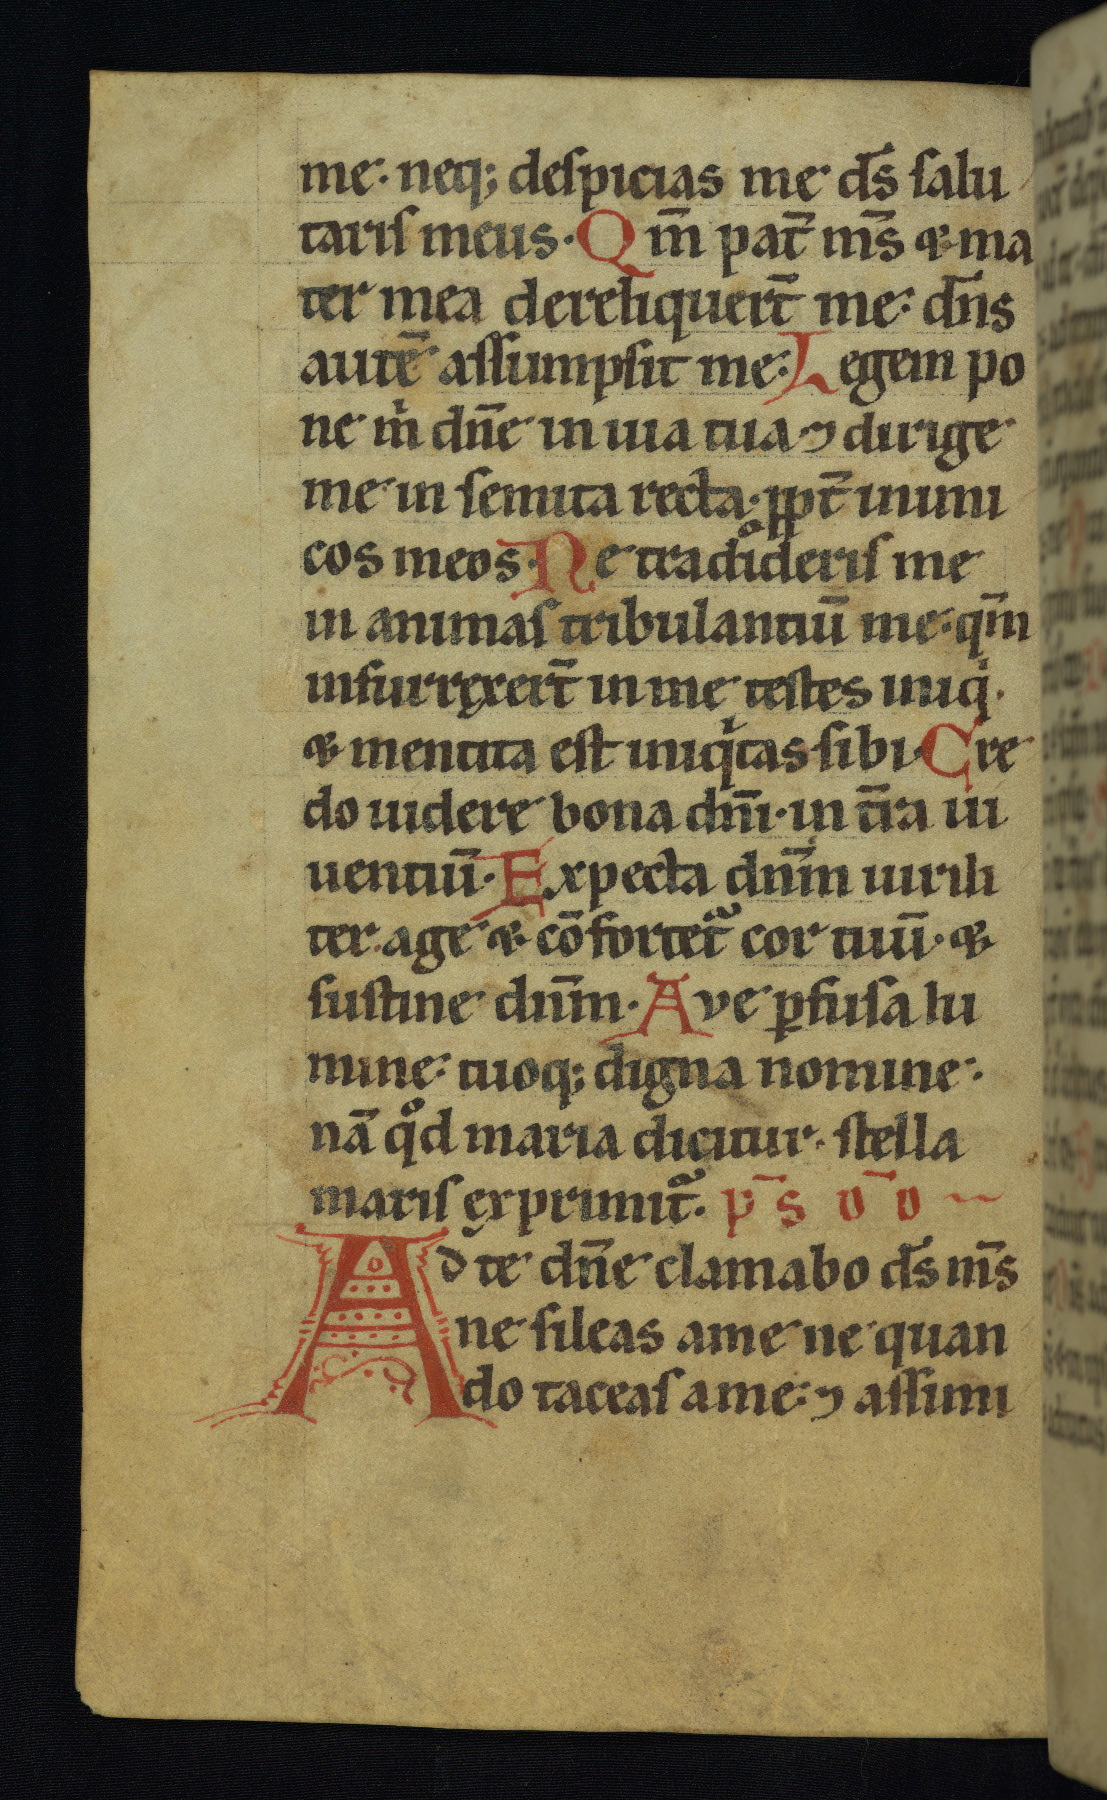 me· neq; deſpicias me dſ̄ ſalu
tariſ meus· Qm̄ pat̄ mſ̄ & ma
ter mea dereliquert̄ me: dn̄s
autē aſſumpſit me· Legem po
ne m̄ dn̄e in uia tua ⁊ dirige
me in ſemita recta· ꝓpt̄ inimi
cos meos· Ne tradideriſ me
in animaſ tribulantiū me: qm̄
inſurrexert̄ in me teſtes iniqͥ·
& mentita eſt iniqͥtas ſibi· Cre
do uidere bona dn̄i· in t̄ra ui
uentiū· Expecta dn̄m uirili
ter age & cōfortet᷑ cor tuū· &
ſuſtine dn̄m· Ave ꝑfuſa lu
mine: tuoq; digna nomine·
nā qͦd maria dicitur· ſtella
mariſ exprimit᷑· p̄s d̄d
Ad te dn̄e clamabo dſ̄ mſ̄
ne ſileas a me ne quan
do taceaſ a me: ⁊ aſſimi